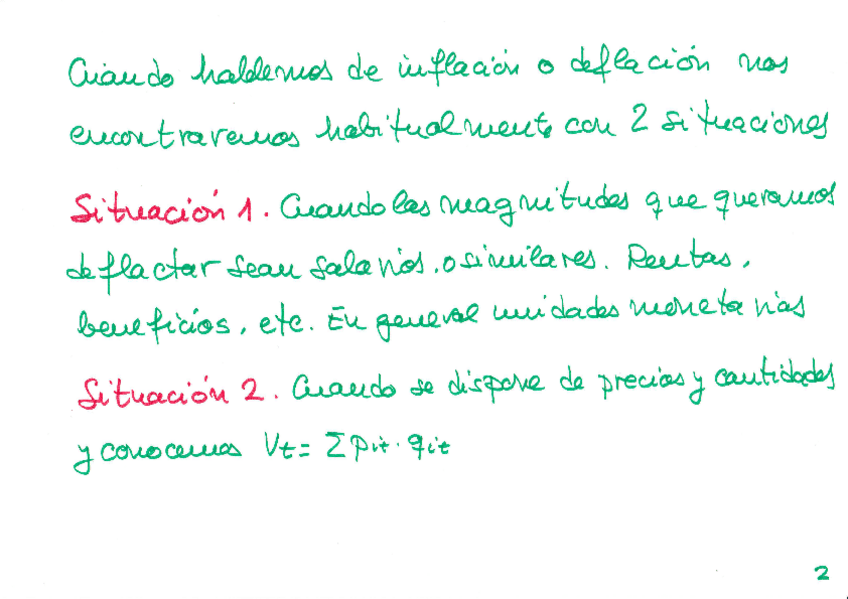 Cuando hablemos de inflación o deflación nos
encontraremos habitualmente con 2 situaciones
Situación 1. Cuando las magnitudes que queramos
deflactar sean salarios, o similares. Rentas,
beneficios, etc. En general unidades monetarias
Situación 2. Cuando se dispone de precios y cantidades
y conocemos Vt = Σ pit · qit
2